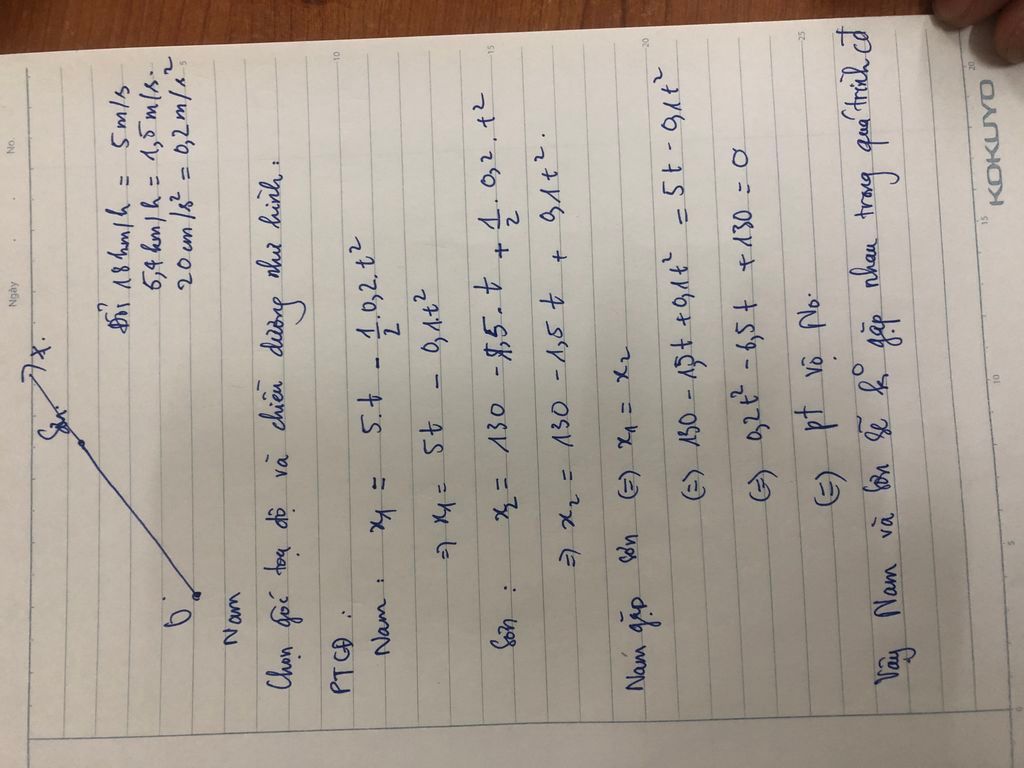 No.
Ngày
Sơn
x.
O
Nam
Đổi 18km/h = 5m/s
5,4km/h = 1,5m/s.
20cm/s² = 0,2m/s²
Chọn gốc toạ độ và chiều dương như hình.
PTCĐ:
Nam: x₁ = 5.t - 1/2.0,2.t²
=> x₁ = 5t - 0,1t²
Sơn: x₂ = 130 - 1,5.t + 1/2.0,2.t²
=> x₂ = 130 - 1,5t + 0,1t².
Nam gặp Sơn (=) x₁ = x₂
(=) 130 - 1,5t + 0,1t² = 5t - 0,1t²
(=) 0,2t² - 6,5t + 130 = 0
(=) pt vô No.
Vậy Nam và Sơn sẽ k° gặp nhau trong quá trình cđ
5
10
15
20
25
5
10
15
20
KOKUYO